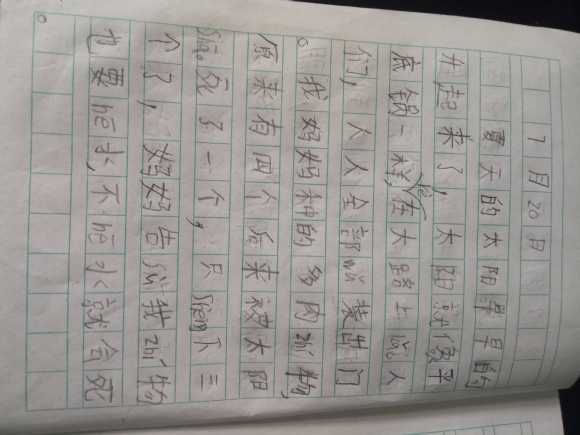 7月20日
夏天的太阳早早的
升起来了,太阳就像平
底锅一样,在大路上人
们,人人全部wǔ装出门
。我妈妈种的多肉zhí物,
原来有四个后来被太阳
sài死了一个,只shèng下三
个了,妈妈告sù我zhí物
也要hē水,不hē水就会死
。